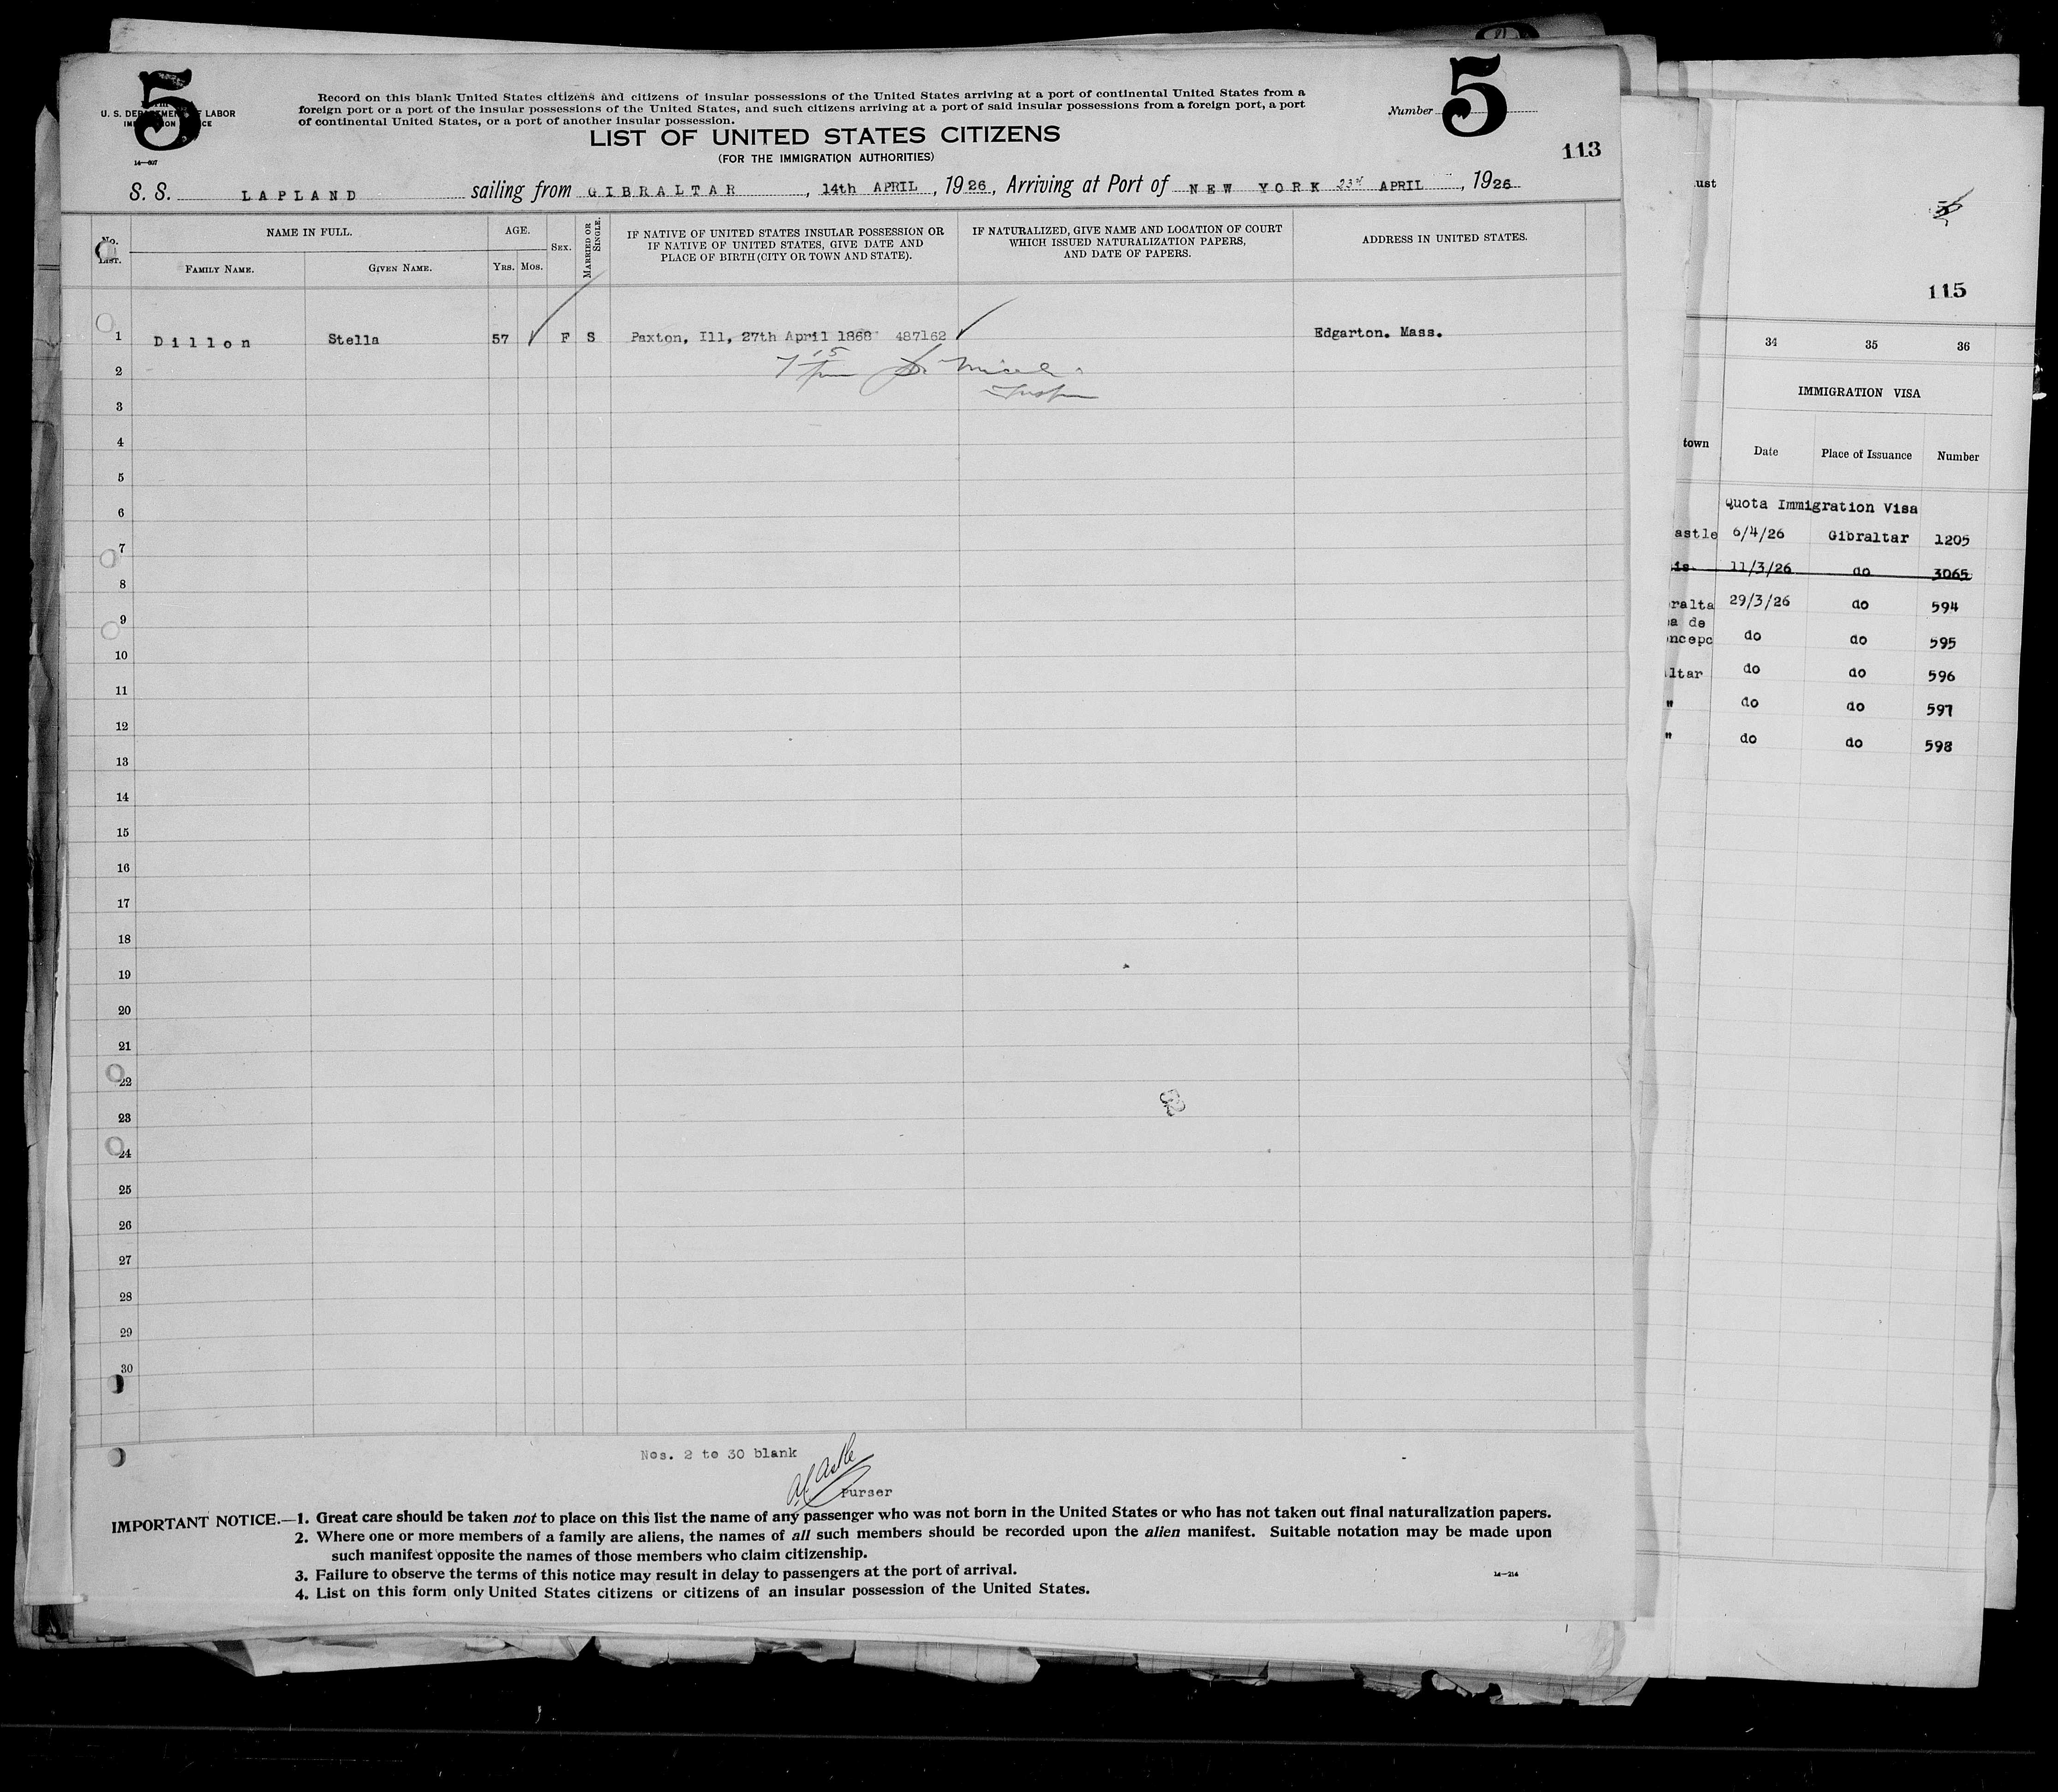 5
U. S. DEPARTMENT OF LABOR
IMMIGRATION SERVICE
14—607
Record on this blank United States citizens and citizens of insular possessions of the United States arriving at a port of continental United States from a
foreign port or a port of the insular possessions of the United States, and such citizens arriving at a port of said insular possessions from a foreign port, a port
of continental United States, or a port of another insular possession.
Number 5
113
LIST OF UNITED STATES CITIZENS
(FOR THE IMMIGRATION AUTHORITIES)
S. S. LAPLAND sailing from GIBRALTAR, 14th APRIL, 1926, Arriving at Port of NEW YORK 23rd APRIL, 1926
No. List.
NAME IN FULL.
Family Name.
Given Name.
AGE.
Yrs. Mos.
Sex.
Married or Single.
IF NATIVE OF UNITED STATES INSULAR POSSESSION OR
IF NATIVE OF UNITED STATES, GIVE DATE AND
PLACE OF BIRTH (CITY OR TOWN AND STATE).
IF NATURALIZED, GIVE NAME AND LOCATION OF COURT
WHICH ISSUED NATURALIZATION PAPERS,
AND DATE OF PAPERS.
ADDRESS IN UNITED STATES.
1 Dillon Stella 57 F S Paxton, Ill, 27th April 1868 487162 Edgarton. Mass.
2
3
4
5
6
7
8
9
10
11
12
13
14
15
16
17
18
19
20
21
22
23
24
25
26
27
28
29
30
Nos. 2 to 30 blank
Purser
IMPORTANT NOTICE.—1. Great care should be taken not to place on this list the name of any passenger who was not born in the United States or who has not taken out final naturalization papers.
2. Where one or more members of a family are aliens, the names of all such members should be recorded upon the alien manifest. Suitable notation may be made upon
such manifest opposite the names of those members who claim citizenship.
3. Failure to observe the terms of this notice may result in delay to passengers at the port of arrival.
4. List on this form only United States citizens or citizens of an insular possession of the United States.
14—214
ust
115
34 35 36
IMMIGRATION VISA
town Date Place of Issuance Number
Quota Immigration Visa
astle 6/4/26 Gibraltar 1205
is 11/3/26 do 3065
ralta 29/3/26 do 594
a de
ncepc do do 595
ltar do do 596
" do do 597
" do do 598